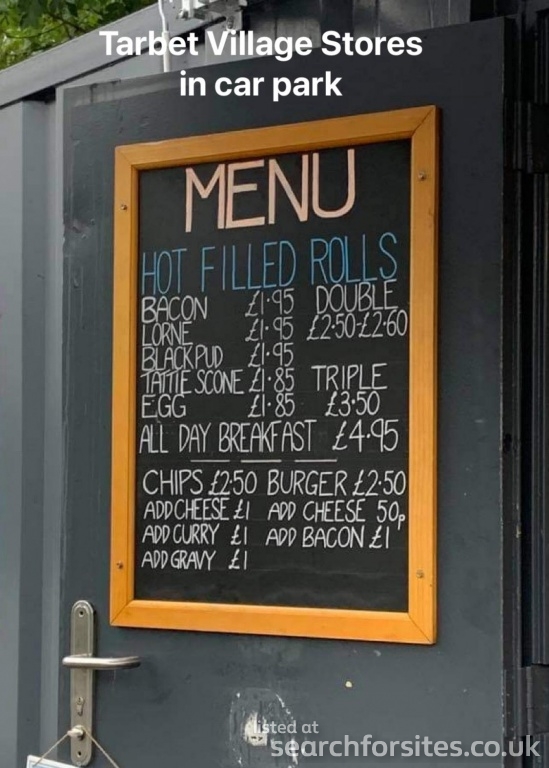 Tarbet Village Stores
in car park
MENU
HOT FILLED ROLLS
BACON £1.95 DOUBLE
LORNE £1.95 £2.50-£2.60
BLACKPUD £1.95
TATTIE SCONE £1.85 TRIPLE
EGG £1.85 £3.50
ALL DAY BREAKFAST £4.95
CHIPS £2.50 BURGER £2.50
ADD CHEESE £1 ADD CHEESE 50p
ADD CURRY £1 ADD BACON £1
ADD GRAVY £1
listed at
searchforsites.co.uk